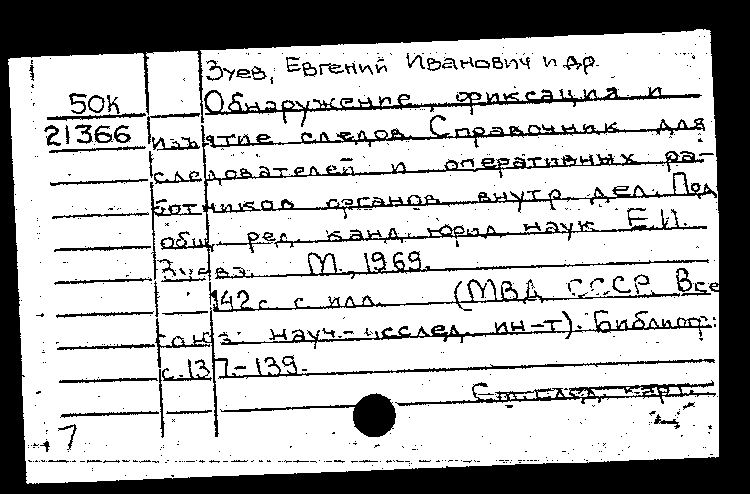 Зуев, Евгений Иванович и др.
50к Обнаружение, фиксация и
21366 изъятие следов. Справочник для
следователей и оперативных ра-
ботников органов внутр. дел. Под
общ. ред. канд. юрид. наук Е.И.
Зуева. М., 1969.
142 с. с илл. (МВД СССР. Все
союз. науч.-исслед. ин-т). Библиогр.:
с. 137-139.
См. след. карт.
7